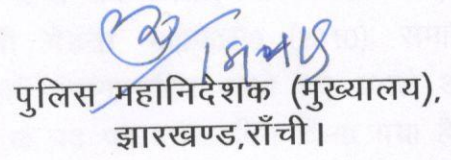 पुलिस महानिदेशक (मुख्यालय),
झारखण्ड,राँची।